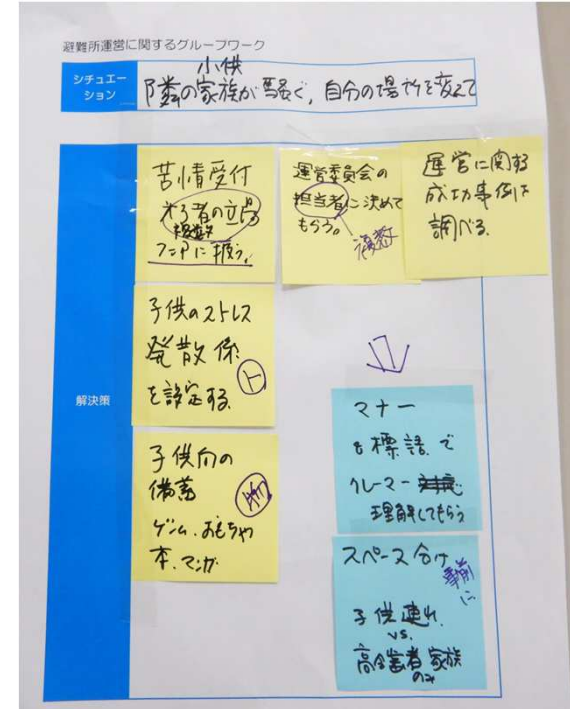 避難所運営に関するグループワーク
シチュエー
ション
小供
隣の家族が騒ぐ,自分の場所を変えて
解決策
苦情受付
する者の立場
フェアに扱う。
運営委員会の
担当者に決めて
もらう。
複数
運営に関する
成功事例を
調べる.
子供のストレス
発散係
を設定する.
人
子供向の
備蓄
物
ゲーム.おもちゃ
本.マンガ
マナー
を標語で
クレーマー
理解してもらう
スペース分け
事前
に
子供連れ.
vs.
家族
のみ